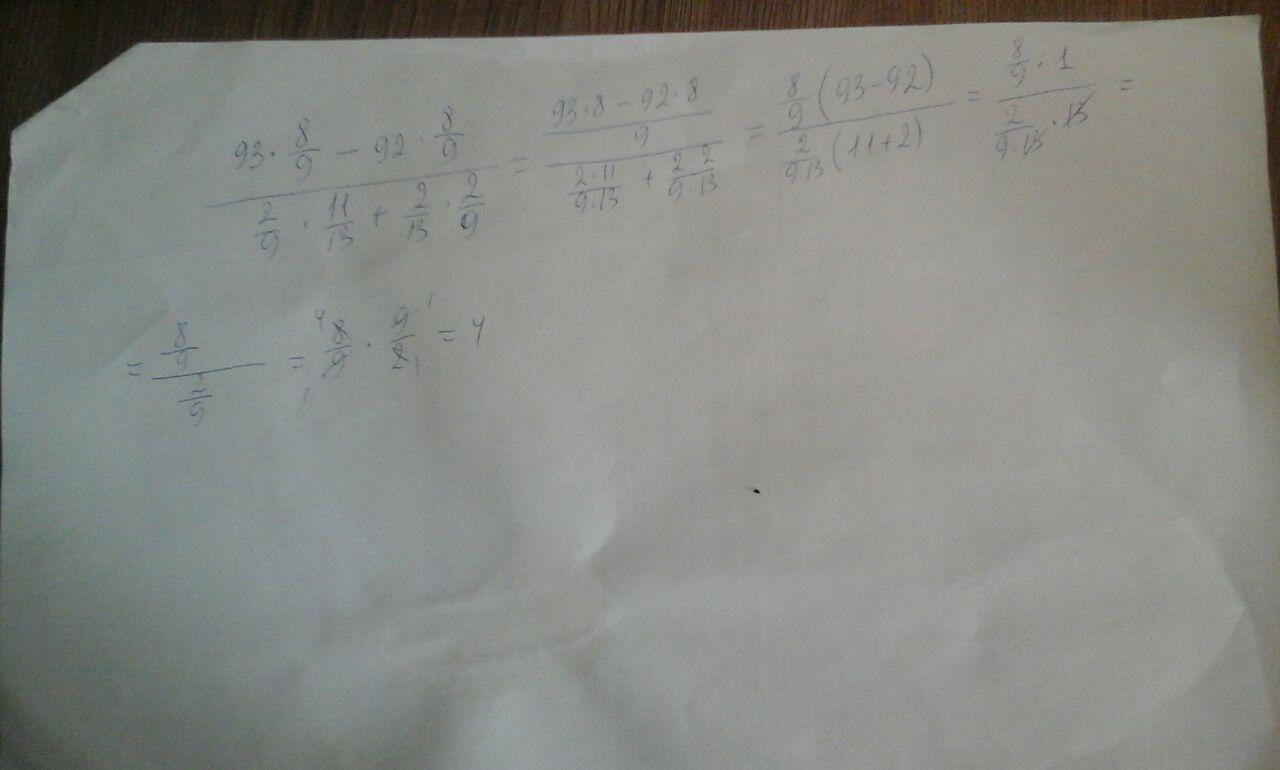 (93 · 8/9 − 92 · 8/9) / (2/9 · 11/13 + 2/13 · 2/9) = ((93·8 − 92·8)/9) / ((2·11)/(9·13) + (2·2)/(9·13)) = (8/9 (93−92)) / (2/(9·13) (11+2)) = (8/9 · 1) / (2/(9·13) · 13) =
= (8/9) / (2/9) = 8/9 · 9/2 = 4